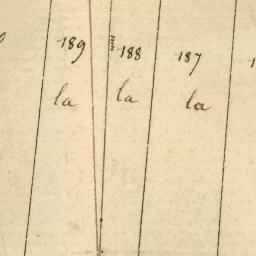 189 188 187
la la la